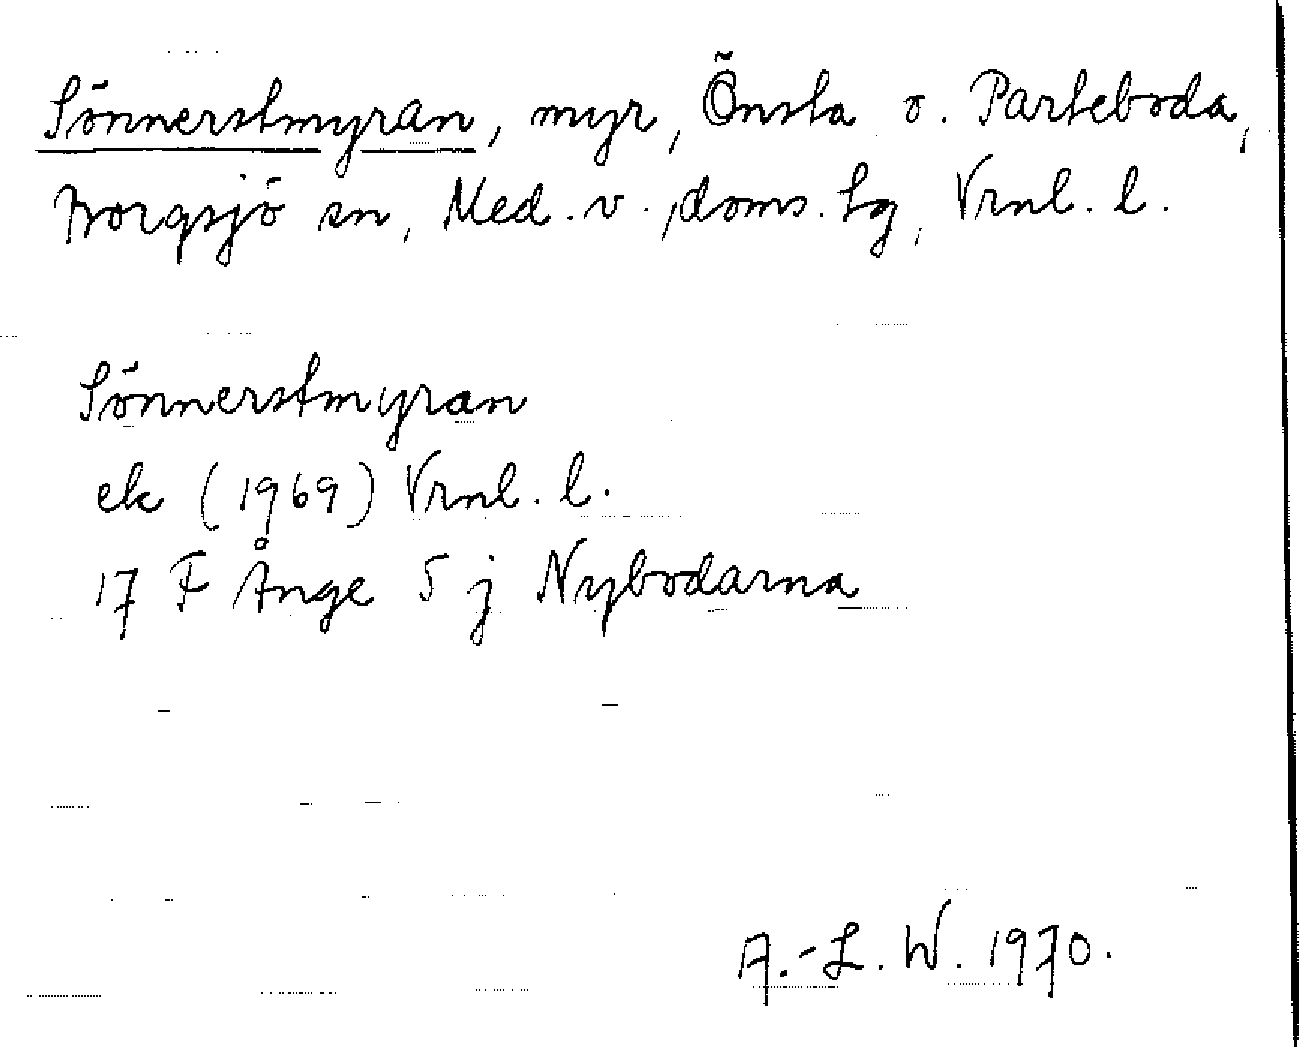 Sönnerstmyran, myr, Önsta o. Parteboda,
Borgsjö sn, Med. v., doms. lg, Vrnl. l.
Sönnerstmyran
ek (1969) Vrnl. l.
17 F Ånge 5 j Nybodarna
A.-L. W. 1970.